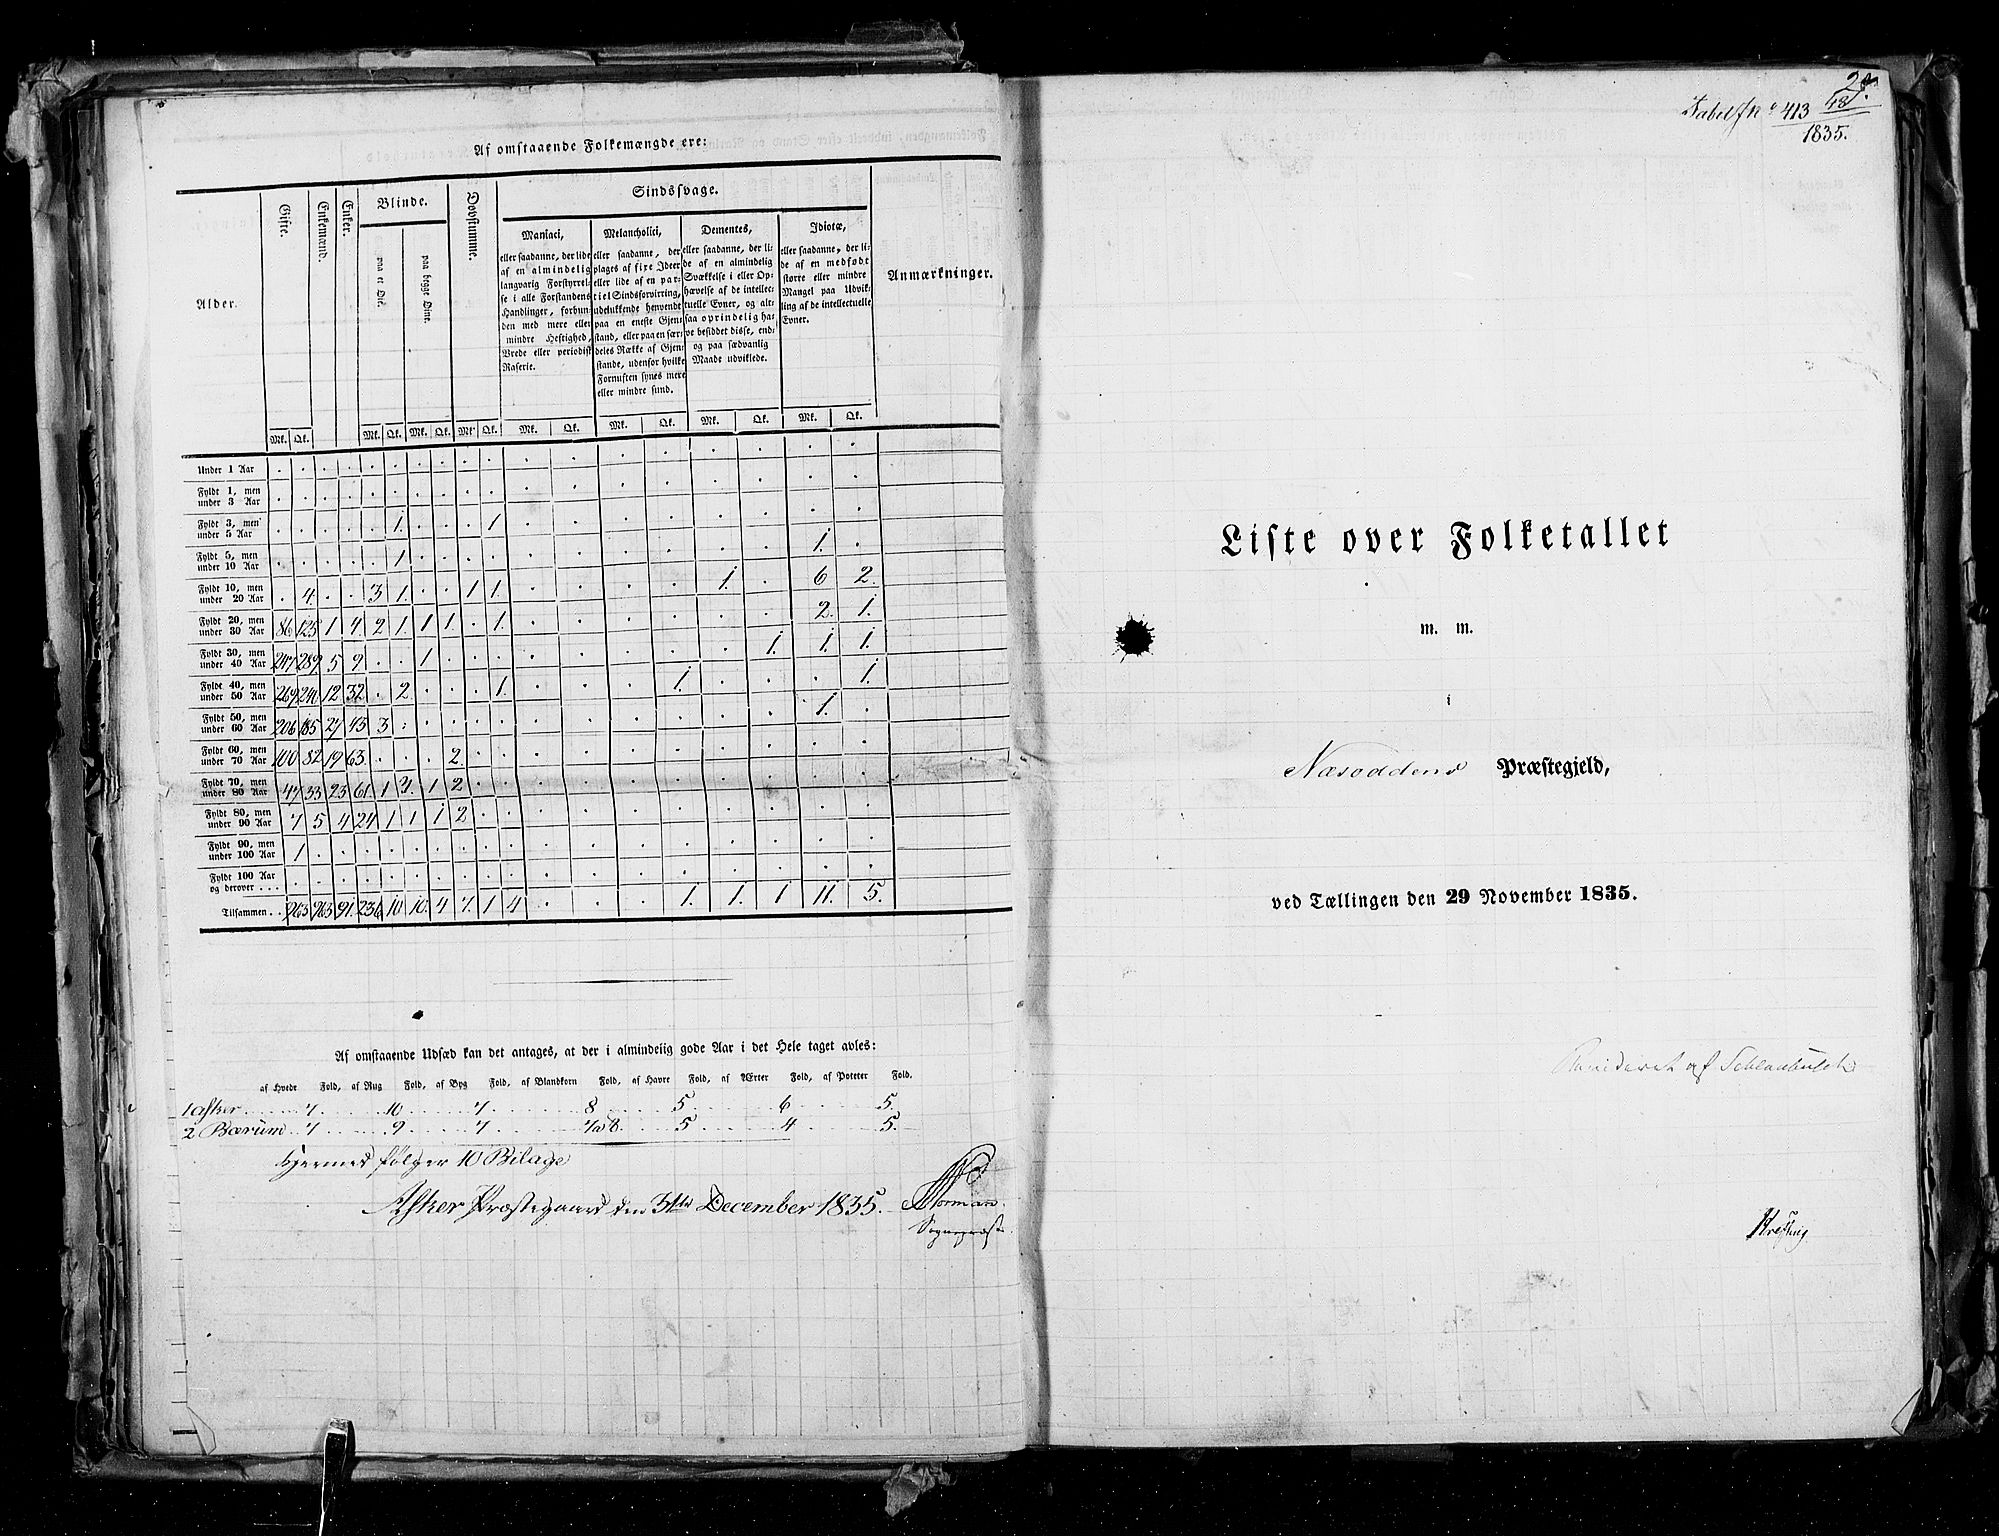 Af omstaaende Folkemængde ere:
Alder. Gifte. Enkemænd. Enker. Blinde. Dovstumme. Sindssvage. Anmærkninger.
paa et Øie. paa begge Øine.
Maniaci,
eller saadanne, der lide
af en almindelig
langvarig Forstyrrel-
se i alle Forstandens
Handlinger, forbun-
den med mere eller
mindre Heftighed,
Vrede eller periodisk
Raserie.
Melancholici,
eller saadanne, der
plages af fixe Ideer
eller lide af en par-
tiel Sindsforvirring,
udelukkende henvendt
paa en eneste Gjen-
stand, eller paa en sær-
deles Række af Gjen-
stande, udenfor hvilke
Fornuften synes mere
eller mindre sund.
Dementes,
eller saadanne, der li-
de af en almindelig
Svækkelse i eller Op-
hævelse af de intellec-
tuelle Evner, og alt-
saa oprindelig ha-
ve besiddet disse, end-
og paa sædvanlig
Maade udviklede.
Idiotæ,
eller saadanne, der li-
de af en medfødt
større eller mindre
Mangel paa Udvik-
ling af de intellectuelle
Evner.
Mk. Qk. Mk. Qk. Mk. Qk. Mk. Qk. Mk. Qk. Mk. Qk. Mk. Qk. Mk. Qk.
Under 1 Aar . . . . . . . . . . . . . . . . . .
Fyldt 1, men under 3 Aar . . . . . . . . . . . . . . . . . .
Fyldt 3, men under 5 Aar . . . . . 1. . . . 1 . . . . . . . .
Fyldt 5, men under 10 Aar . . . . . 1 . . . . . . . . . . 1. .
Fyldt 10, men under 20 Aar . 4. . . 3 1. . . 1 1. . . . . 1. . 6 2.
Fyldt 20, men under 30 Aar 86 125 1 4. 2 1. 1 1. . 1. . . . . . . 2. 1.
Fyldt 30, men under 40 Aar 247 289 5 9. . . 1 . . . . . . . . 1. 1. 1.
Fyldt 40, men under 50 Aar 269 240 12 32. . 2 . . . 1. . . . 1. . . . 1.
Fyldt 50, men under 60 Aar 206 185 27 43 3 . . . . . . . . . . . 1. .
Fyldt 60, men under 70 Aar 100 82 19 63. . . . 2. . . . . . . . . . .
Fyldt 70, men under 80 Aar 47 33 23 61 1 3. 1 2 . . . . . . . . . .
Fyldt 80, men under 90 Aar 7 5 4 24 1 1 1 2 . . . . . . . . . .
Fyldt 90, men under 100 Aar 1 . . . . . . . . . . . . . . . . .
Fyldt 100 Aar og derover . . . . . . . . . . . . . . . . . . . . .
Tilsammen . . 963 963 91. 236 10 10. 4 7. 1 4 . . . 1. 1. 1 11. 5.
Af omstaaende Udsæd kan det antages, at der i almindelig gode Aar i det Hele taget avles:
af Hvede Fold, af Rug Fold, af Byg Fold, af Blandkorn Fold, af Havre Fold, af Ærter Fold, af Poteter Fold.
1 Asker 7 10 7 8 5 6 5.
2 Bærum 7 9 7 7 a 8. 5 4 5.
Hermed følger 10 Bilage
Asker Præstegaard den 31te December 1835. Norman.
Sognepræst.
1835.
Liste over Folketallet
m. m.
i
Næsoddens Præstegjeld,
ved Tællingen den 29 November 1835.
Revideret af